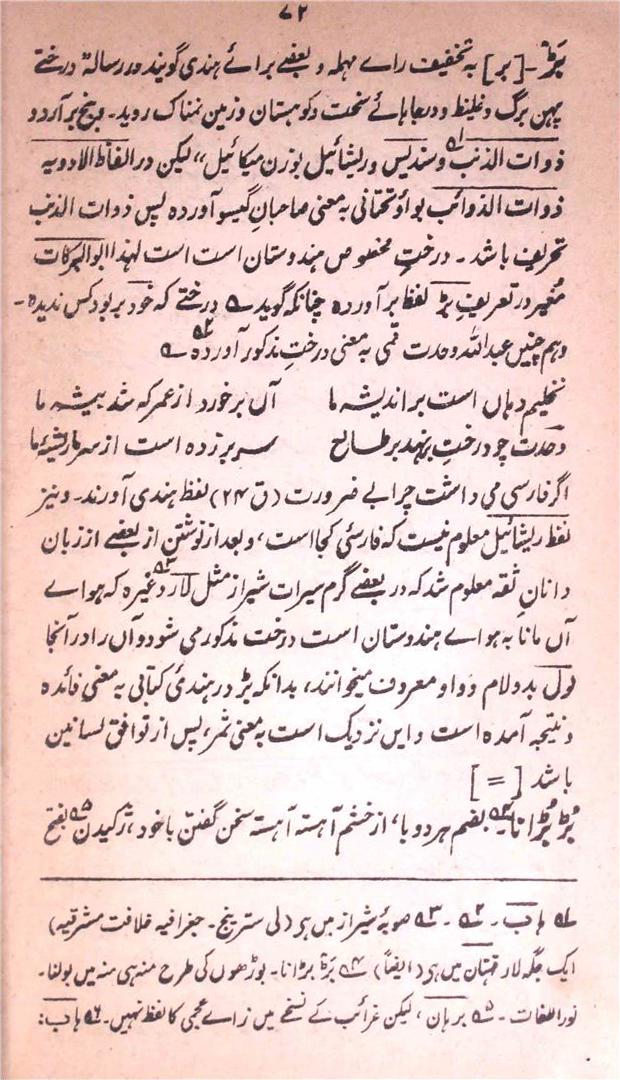 ۷۲
بَڑ ۔ [ بر ] بہ تخفیف رائے مہملہ و بعضے برائے ہندی گویند در رسالہ درختے
پہن برگ و غلیظ و در جاہائے سخت و کوہستان و زمین نمناک روید ۔ و بیخ بر آرد و
ذوات الذنب و سندیس و ریشائیل بوزن میکائیل“ لیکن در الفاظ الادویہ
ذوات الذوائب بواؤ تحتانی بہ معنی صاحبانِ گیسو آوردہ پس ذوات الذنب
تحریف باشد ۔ درختِ مخصوص ہندوستان است است لہٰذا ابوالبرکات
منیر در تعریفِ بڑ لفظ بر آوردہ چنانکہ گوید ؎ درختے کہ خود بر بود کس ندیدہ ۔
وہم چنیں عبداللہ وحدت قمی بہ معنی درختِ مذکور آوردہ ؎
نخلیم دہاں است بر اندیشہ ما آں بر خورد از عمر کہ شد بیشہ ما
وحدت چو درختِ بر ہند بر طالع سر بر زدہ است از سر ما ریشۂ ما
اگر فارسی می داشت چرا بے ضرورت (ق ۲۴) لفظ ہندی آورند ۔ و نیز
لفظ ریشائیل معلوم نیست کہ فارسیٔ کجا است ، و بعد از نوشتن از بعضے از زبان
دانانِ ثقہ معلوم شد کہ در بعضے گرم سیرات شیراز مثل لار وغیرہ کہ ہوائے
آں مانا بہ ہوائے ہندوستان است درخت مذکور می شود و آں را در آنجا
لول بدو لام و واو معروف میخوانند ، بدانکہ بڑ در ہندیٔ کتابی بہ معنی فائدہ
و نتیجہ آمدہ است و ایں نزدیک است بہ معنی ثمر ، پس از توافق لسانین
باشد [ = ]
بُڑ بُڑانا بضم ہر دو با ، از خشم آہستہ آہستہ سخن گفتن با خود ، ژکیدن بفتح
۱؎ ہاب ۔ ۲؎ ۔ ۳؎ صوبۂ شیراز میں ہی (لی سترینج ۔ جغرافیہ خلافت مشرقیہ)
ایک جگہ لار قہستان میں ہی (ایضاً) ۴؎ بڑبڑانا ۔ بوڑھوں کی طرح منہ ہی منہ میں بولنا ۔
نوراللغات ۔ ۵؎ برہان ، لیکن غرائب کے نسخے میں زائے عجمی کا لفظ نہیں ۔ ۶؎ ہاب :